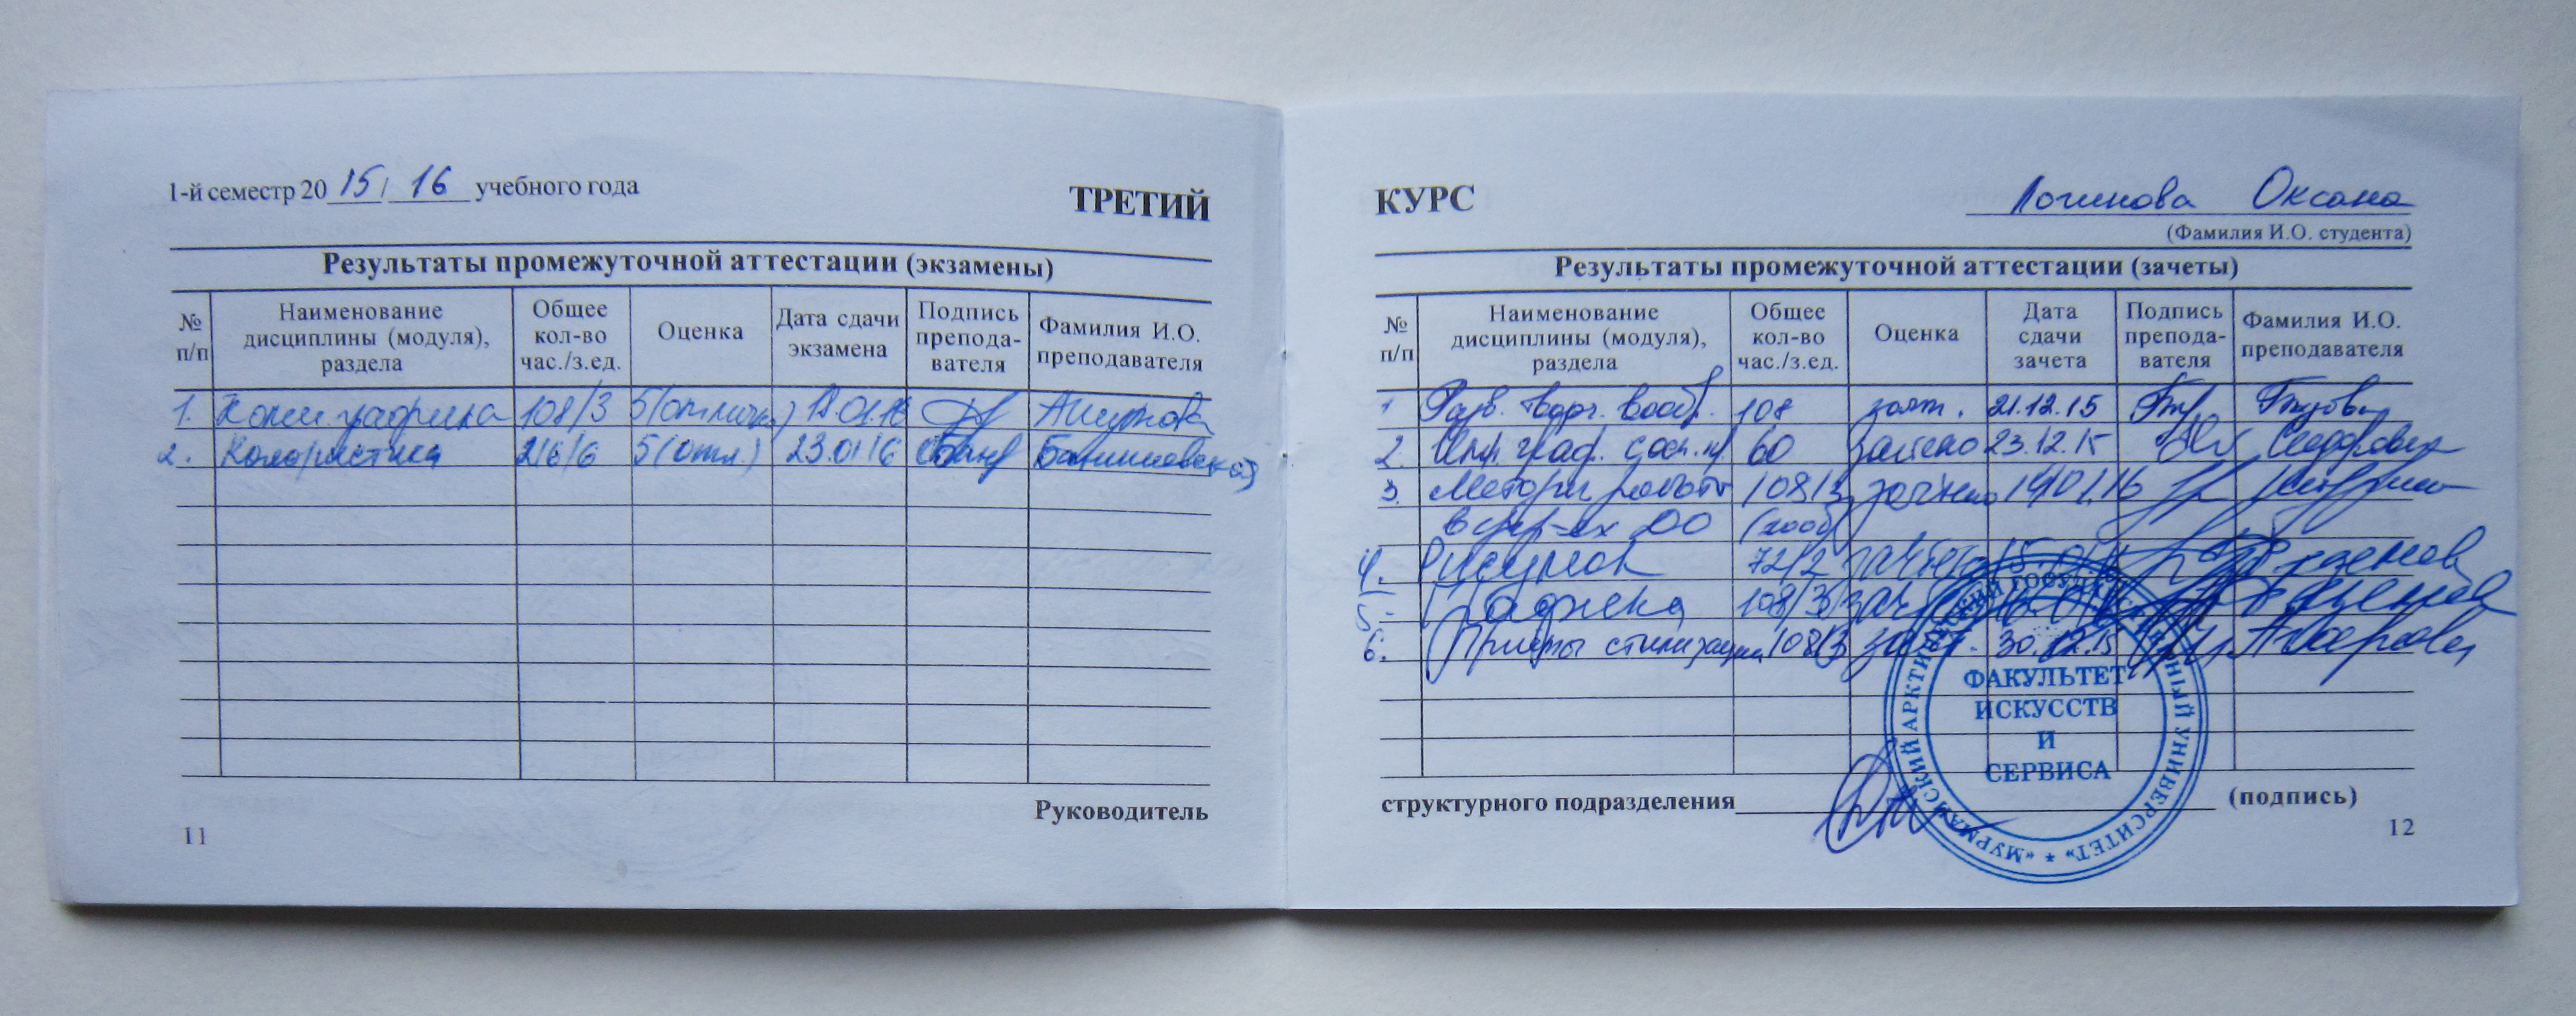 1-й семестр 20 15 / 16 учебного года
ТРЕТИЙ
Результаты промежуточной аттестации (экзамены)
№ п/п
Наименование дисциплины (модуля), раздела
Общее кол-во час./з.ед.
Оценка
Дата сдачи экзамена
Подпись препода-вателя
Фамилия И.О. преподавателя
1. Комп. графика 108/3 5(отлично) 18.01.16
2. Колористика 216/6 5(отл.) 23.01.16
Руководитель
11
КУРС
Логинова Оксана
(Фамилия И.О. студента)
Результаты промежуточной аттестации (зачеты)
№ п/п
Наименование дисциплины (модуля), раздела
Общее кол-во час./з.ед.
Оценка
Дата сдачи зачета
Подпись препода-вателя
Фамилия И.О. преподавателя
1 Разв. твор. вообр. 108 зачт. 21.12.15
2. 60 зачтено 23.12.15
3. Методы работы 108/3 зачтено
в ДО
4. Рисунок 72/2 зачтено
5. Графика 108/3 зач
6. Приемы стилизации 108/3 30.12.15
ФАКУЛЬТЕТ
ИСКУССТВ
И
СЕРВИСА
«МУРМАНСКИЙ АРКТИЧЕСКИЙ ГОСУДАРСТВЕННЫЙ УНИВЕРСИТЕТ» *
структурного подразделения (подпись)
12